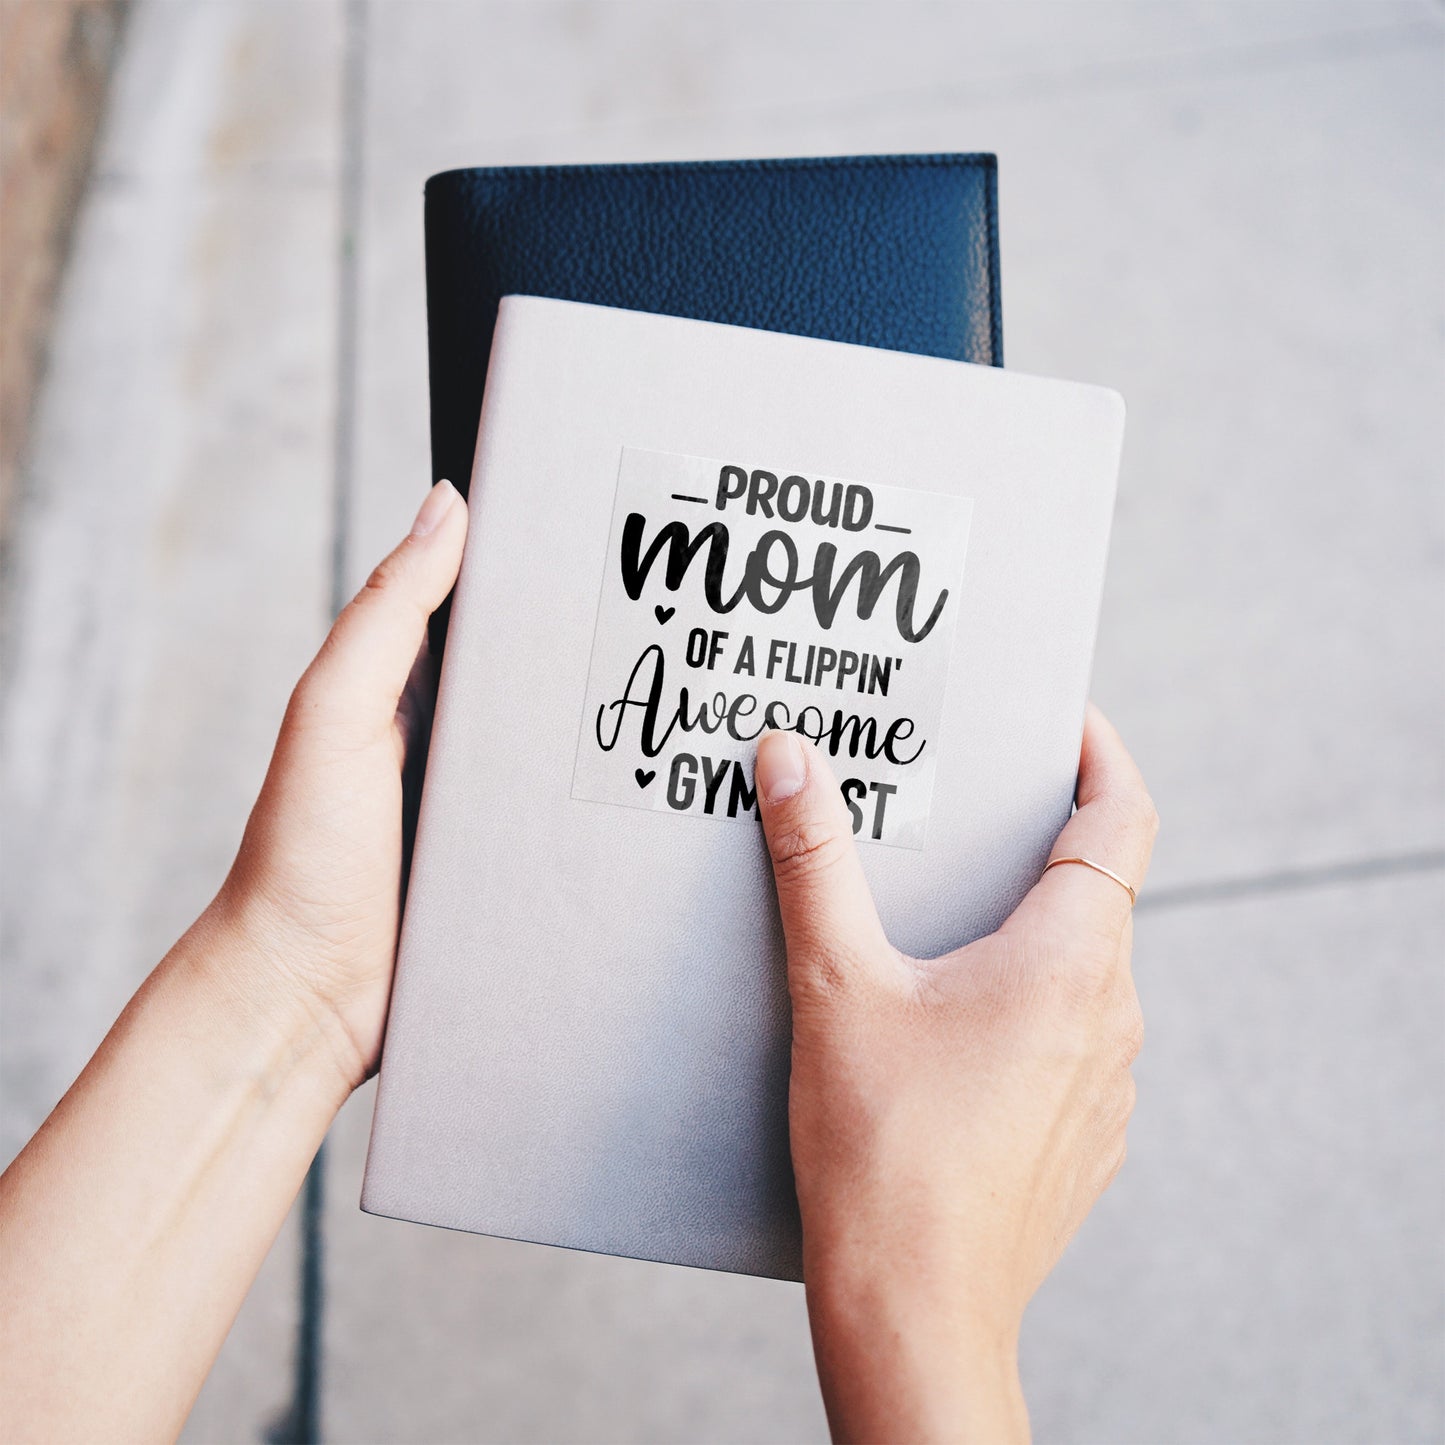 PROUD
mom
OF A FLIPPIN'
Awesome
GYMNAST